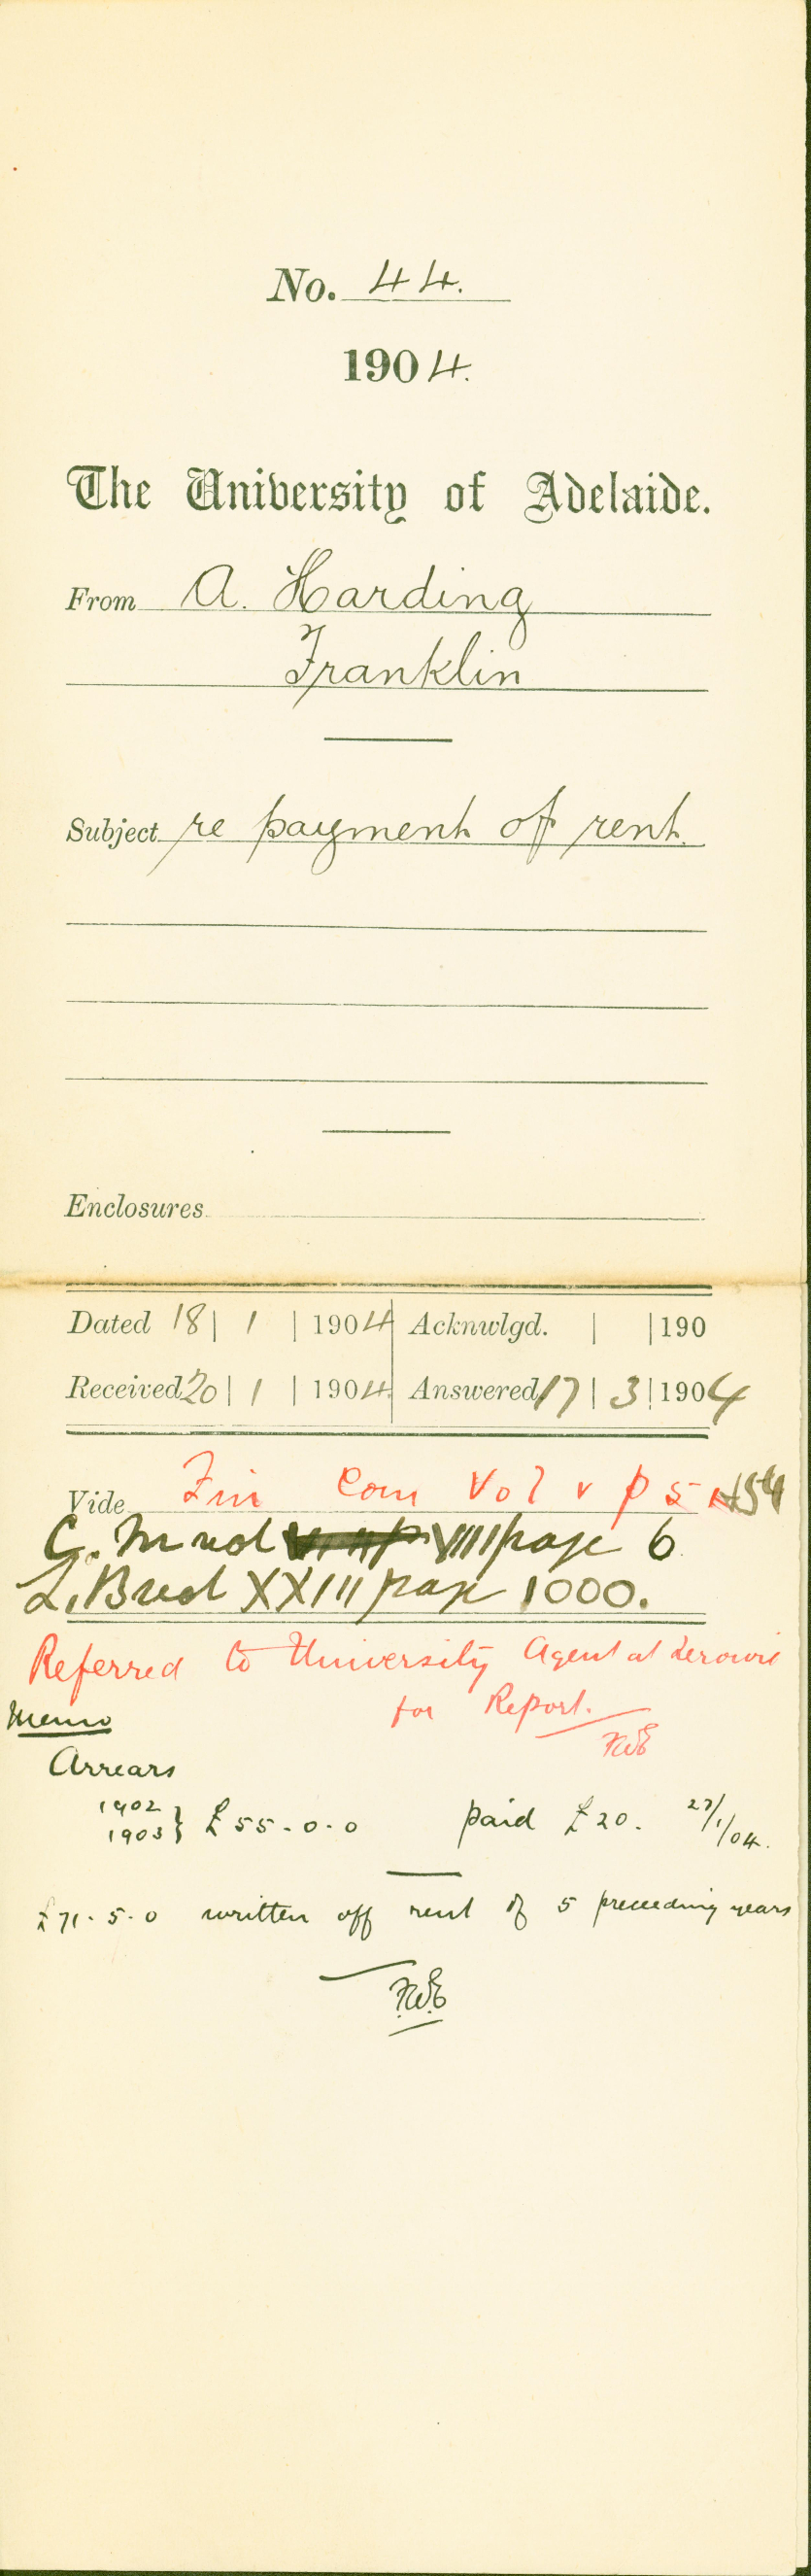 No. 44.
1904.
The University of Adelaide.
From A. Harding
Franklin
Subject re payment of rent.
Enclosures
Dated 18 | 1 | 1904 Acknwlgd. | | 190
Received 20 | 1 | 1904 Answered 17 | 3 | 1904
Vide Fin Com Vol v p 54
C. M vol VIII page 6
L. B vol XXIII page 1000.
Referred to University Agent at Terowie
for Report.
FWE
Memo
Arrears
1902
1903 } £55-0-0 paid £20. 27/1/04.
£71-5-0 written off rent of 5 preceding years
F.W.E